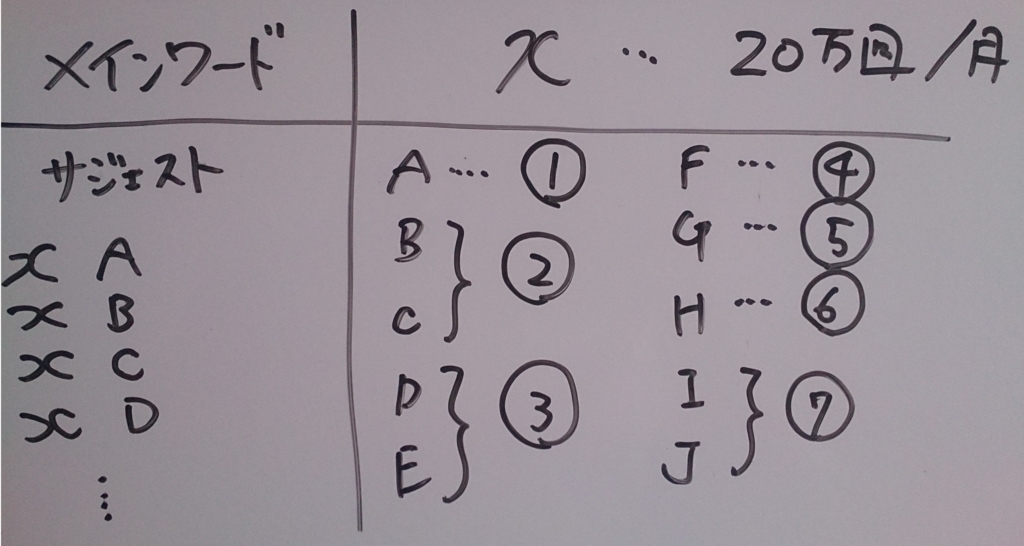 メインワード
x … 20万回/月
サジェスト
x A
x B
x C
x D
⋮
A … ①
B
C } ②
D
E } ③
F … ④
G … ⑤
H … ⑥
I
J } ⑦